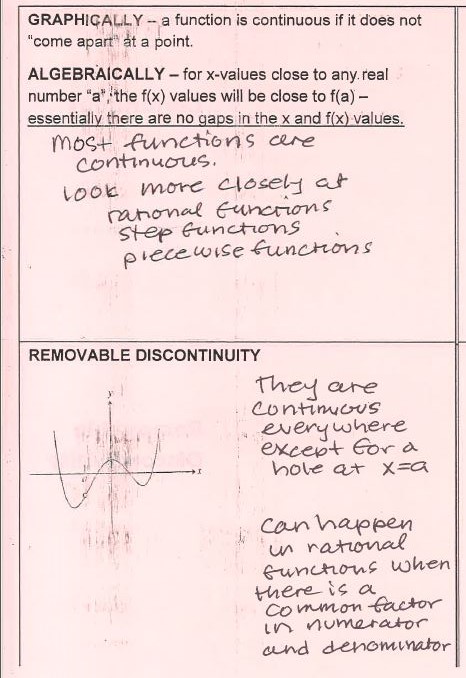 GRAPHICALLY – a function is continuous if it does not
"come apart" at a point.
ALGEBRAICALLY – for x-values close to any real
number "a", the f(x) values will be close to f(a) –
essentially there are no gaps in the x and f(x) values.
Most functions are
continuous.
Look more closely at
rational functions
step functions
piecewise functions
REMOVABLE DISCONTINUITY
They are
continuous
everywhere
except for a
hole at x=a
y
x
Can happen
in rational
functions when
there is a
common factor
in numerator
and denominator